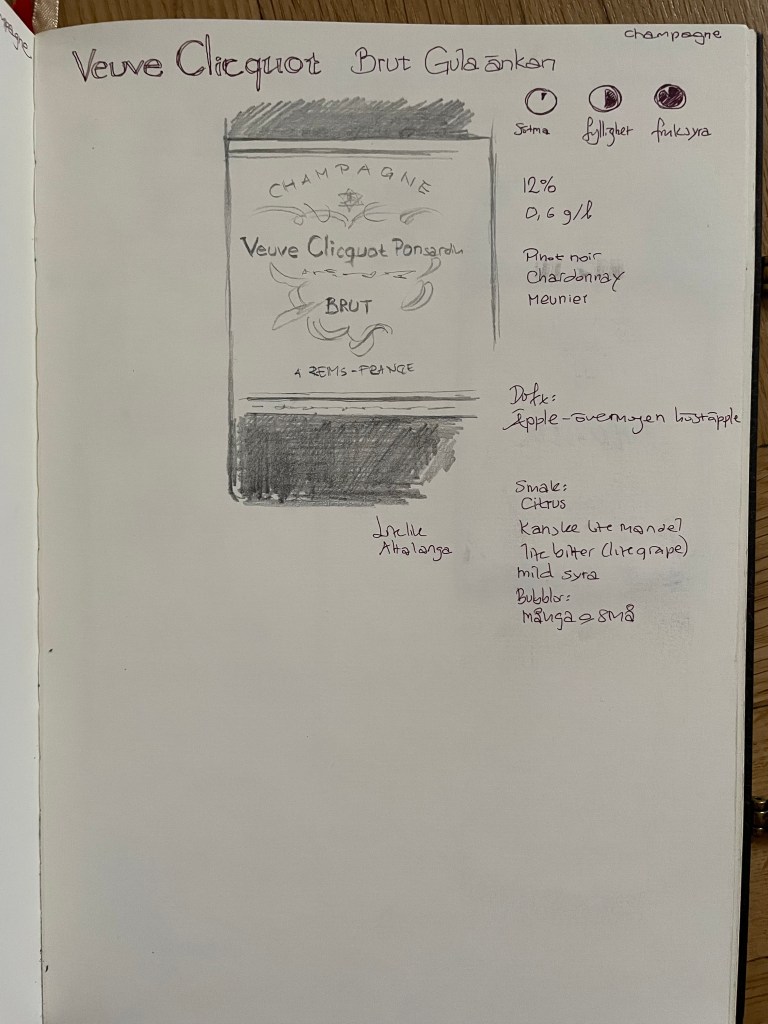 champagne
Veuve Clicquot Brut Gula änkan
Sötma fyllighet fruksyra
CHAMPAGNE
Veuve Clicquot Ponsardin
BRUT
A REIMS-FRANCE
12%
0,6 g/l
Pinot noir
Chardonnay
Meunier
Doft:
Äpple-övermogen höstäpple
Smak:
Citrus
Kanske lite mandel
lite bitter (lite grape)
mild syra
Bubblor:
många & små
Altalanga